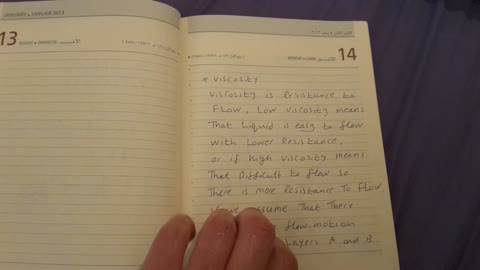 JANUARY • JANVIER 2013
13
14
* viscosity
viscosity is Resistance to
Flow, Low viscosity means
That Liquid is easy to flow
with Lower Resistance,
or if high viscosity means
That Difficult to flow so
There is more Resistance To Flow
assume That There
flow motion
Layers A and B